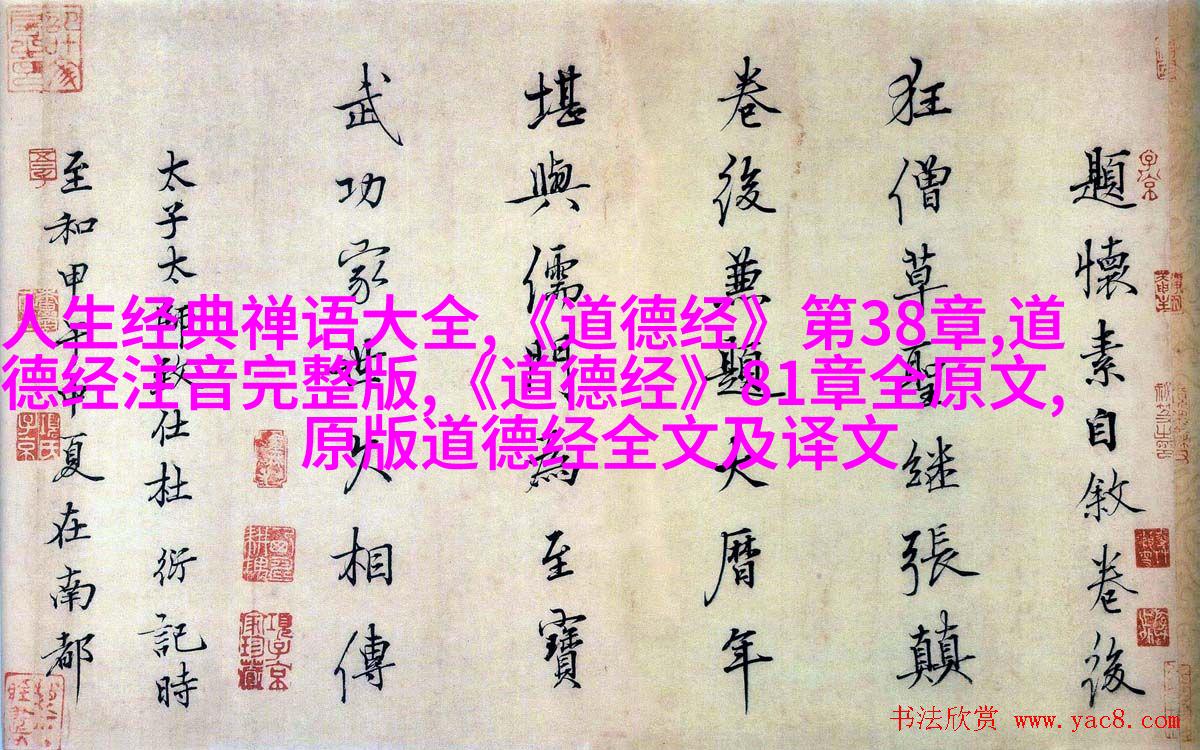 題懷素自敘卷後
狂僧草聖繼張顛
卷後兼題大曆年
堪與儒門為至寶
武功家世久相傳
太子太師致仕杜衍記時
至和甲午中夏在南都
人生经典禅语大全,《道德经》第38章,道
德经注音完整版,《道德经》81章全原文,
原版道德经全文及译文
书法欣赏 www.yac8.com